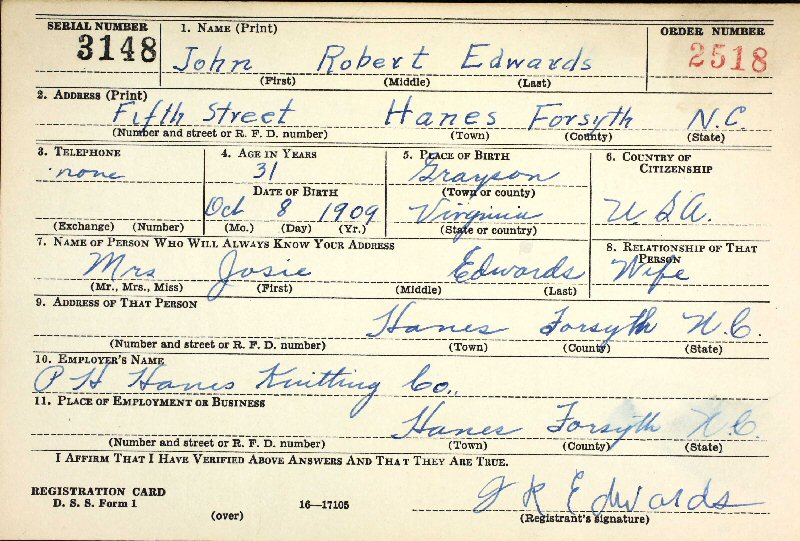 SERIAL NUMBER 1. NAME (Print) ORDER NUMBER
3148 John Robert Edwards 2518
(First) (Middle) (Last)
2. ADDRESS (Print)
Fifth Street Hanes Forsyth N.C.
(Number and street or R. F. D. number) (Town) (County) (State)
3. TELEPHONE 4. AGE IN YEARS 5. PLACE OF BIRTH 6. COUNTRY OF CITIZENSHIP
none 31 Grayson
DATE OF BIRTH (Town or county)
Oct 8 1909 Virginia U.S.A.
(Exchange) (Number) (Mo.) (Day) (Yr.) (State or country)
7. NAME OF PERSON WHO WILL ALWAYS KNOW YOUR ADDRESS 8. RELATIONSHIP OF THAT PERSON
Mrs Josie Edwards Wife
(Mr., Mrs., Miss) (First) (Middle) (Last)
9. ADDRESS OF THAT PERSON
Hanes Forsyth N.C.
(Number and street or R. F. D. number) (Town) (County) (State)
10. EMPLOYER'S NAME
P H Hanes Knitting Co.
11. PLACE OF EMPLOYMENT OR BUSINESS
Hanes Forsyth N.C.
(Number and street or R. F. D. number) (Town) (County) (State)
I AFFIRM THAT I HAVE VERIFIED ABOVE ANSWERS AND THAT THEY ARE TRUE.
REGISTRATION CARD J R Edwards
D. S. S. Form 1 16—17105
(over) (Registrant's signature)